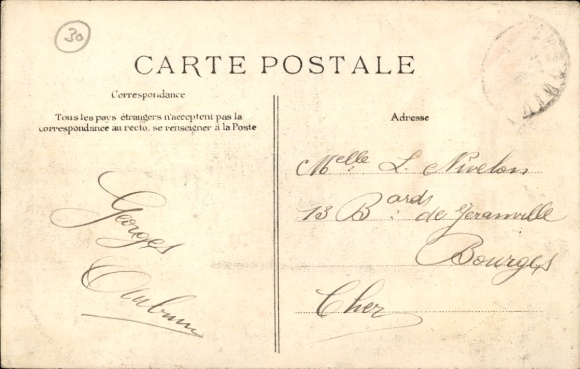 30
CARTE POSTALE
Correspondance
Tous les pays étrangers n'acceptent pas la
correspondance au recto, se renseigner à la Poste
Adresse
Georges
Melle L. Nivelon
13 Bards de
Bourges
Cher